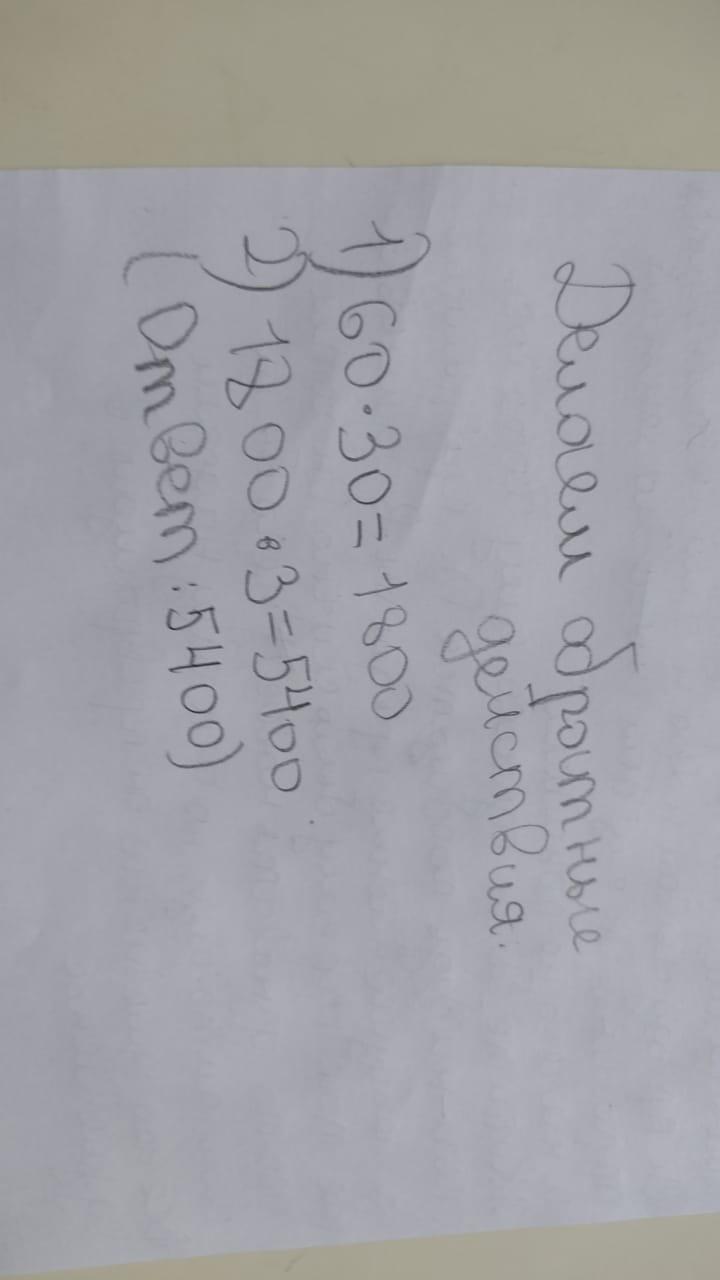 Делаем обратные
действия.
1) 60·30=1800
2) 1800·3=5400
(Ответ:5400)